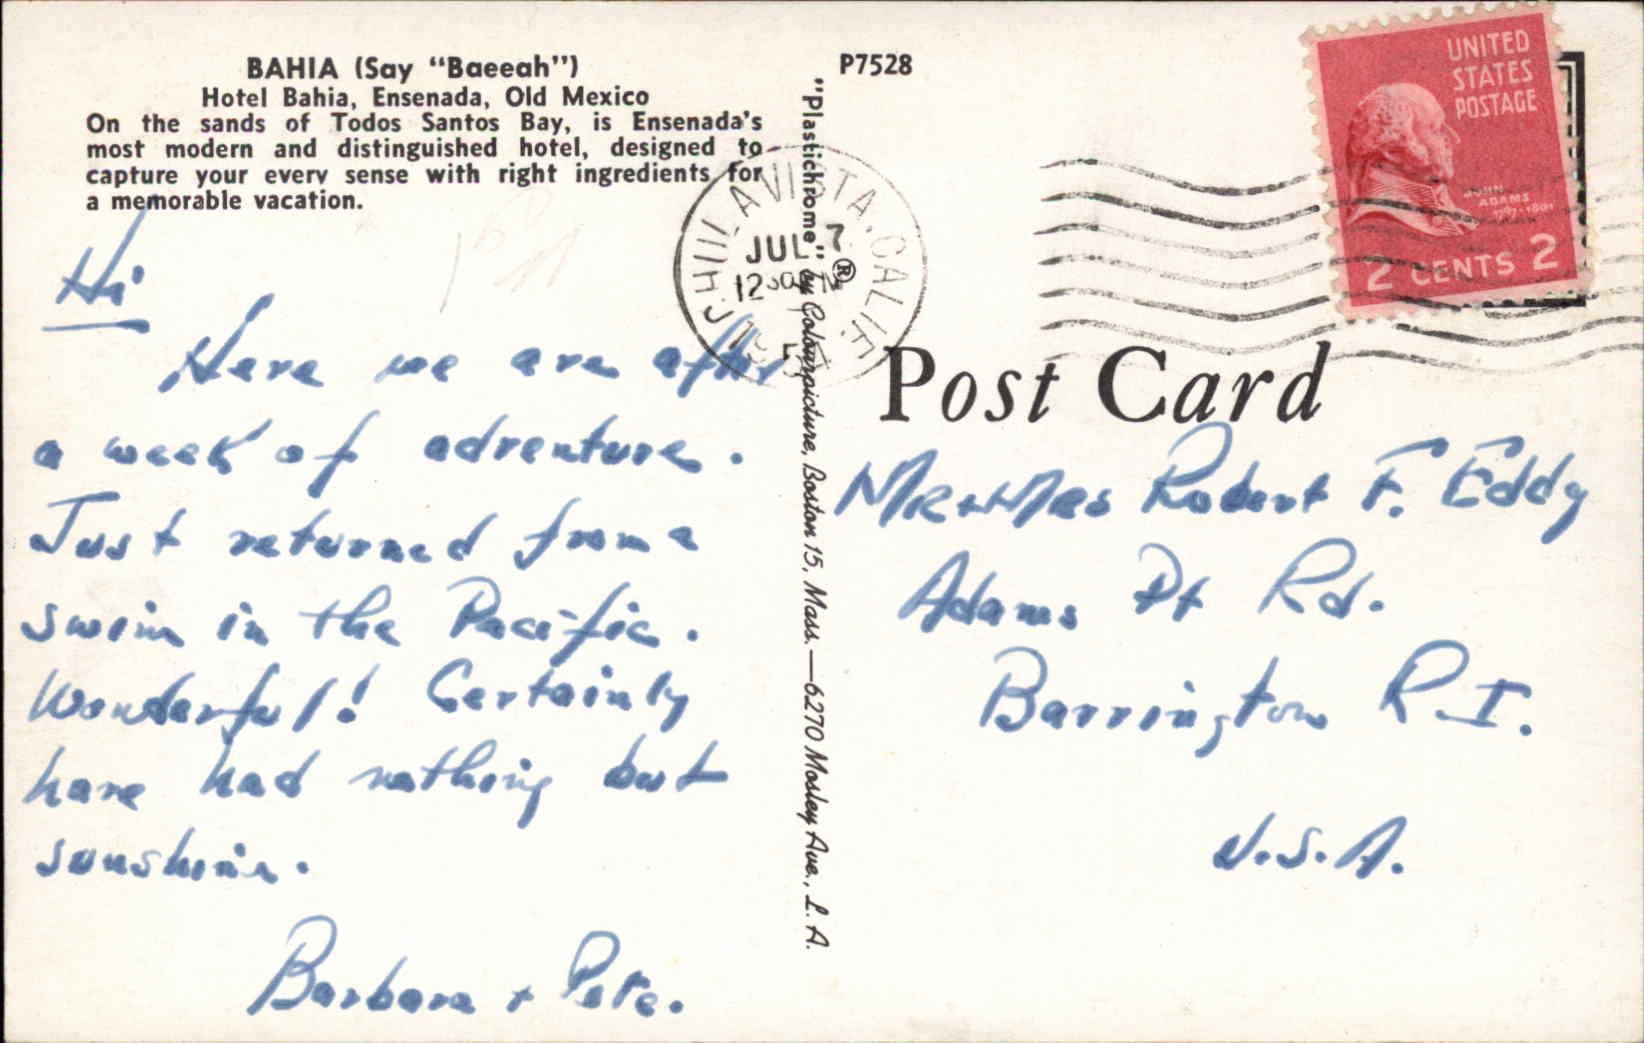 BAHIA (Say "Baeeah")
Hotel Bahia, Ensenada, Old Mexico
On the sands of Todos Santos Bay, is Ensenada's
most modern and distinguished hotel, designed to
capture your every sense with right ingredients for
a memorable vacation.
Hi
Here we are after
a week of adventure.
Just returned from a
swim in the Pacific.
Wonderful! Certainly
have had nothing but
sunshine.
Barbara + Pete.
"Plastichrome"® by Colourpicture, Boston 15, Mass.—6270 Mosley Ave., L. A.
P7528
CHULA VISTA, CALIF.
JUL 7
12
UNITED
STATES
POSTAGE
JOHN
ADAMS
1797-1801
2 CENTS 2
Post Card
Mr + Mrs Robert F. Eddy
Adams Pt Rd.
Barrington R.I.
U.S.A.